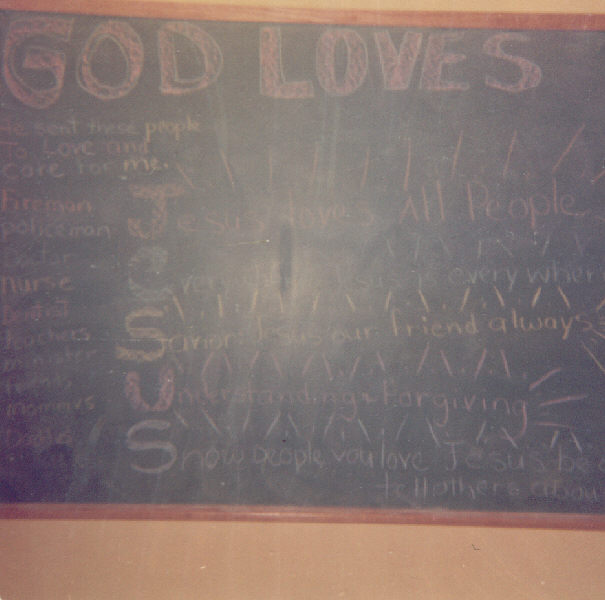 GOD LOVES
He sent these people
To Love and
care for me.
Fireman
policeman
Doctor
nurse
Dentist
Teachers
minister
friends
mommys
Dads
Jesus loves All People
every wher
Savior Jesus our friend always
Understanding & Forgiving
Snow people you love Jesus be
tell others abou